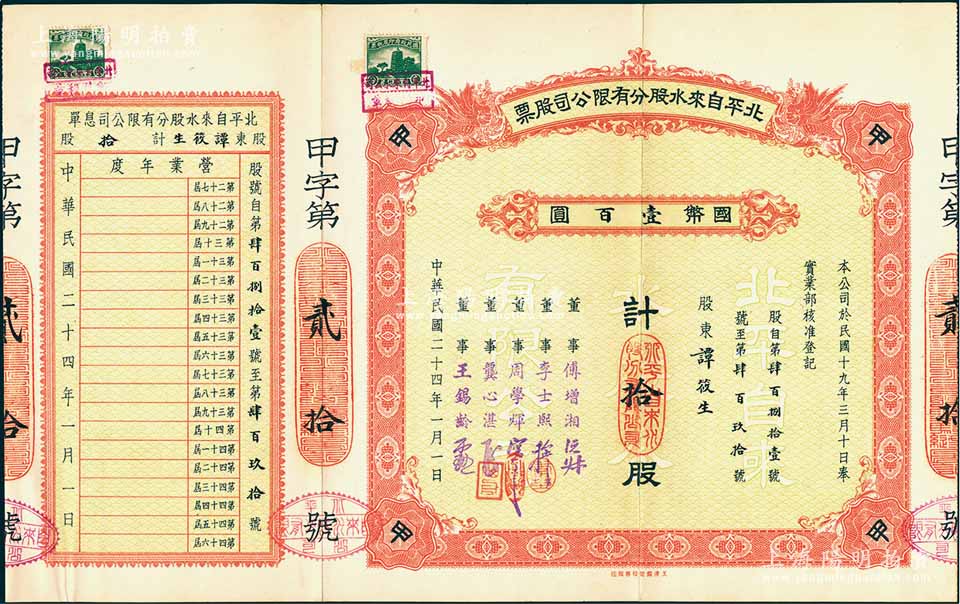 北平自來水股分有限公司股票
國幣壹百圓
本公司於民國十九年三月十日奉
實業部核准登記
股自第肆百捌拾壹號
號至第肆百玖拾號
股東譚筱生
計拾股
董事傅增湘
董事李士熙
董事周學煇
董事龔心湛
董事王錫齡
中華民國二十四年一月一日
甲
甲
甲
甲
北平自來水
有限
甲字第貳拾號
甲字第貳拾號
甲字第貳拾號
北平自來水股分有限公司息單
股東譚筱生計拾股
營業年度
股號自第肆百捌拾壹號至第肆百玖拾號
第二十七屆
第二十八屆
第二十九屆
第三十屆
第三十一屆
第三十二屆
第三十三屆
第三十四屆
第三十五屆
第三十六屆
第三十七屆
第三十八屆
第三十九屆
第四十屆
第四十一屆
第四十二屆
第四十三屆
第四十四屆
第四十五屆
第四十六屆
中華民國二十四年一月一日
上海陽明拍賣
上海陽明拍賣